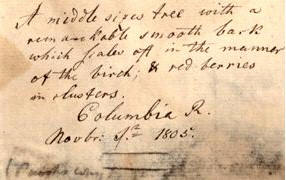 A middle sizes tree with a
remarkable smooth bark
which scales off in the manner
of the birch; & red berries
in clusters.
Columbia R.
Novbr. 1st 1805.